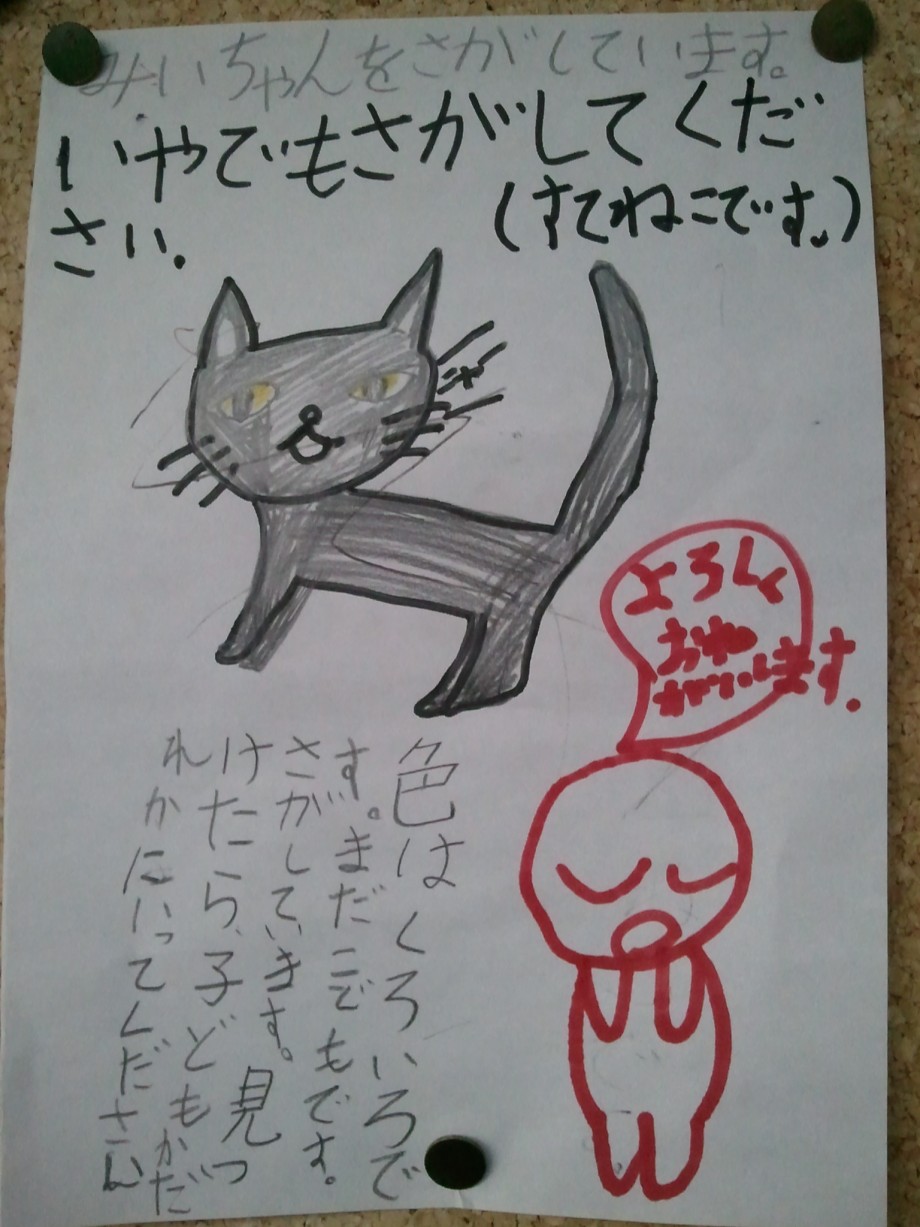 みいちゃんをさがしています。
いやでもさがしてくだ
さい.
(すてねこです。)
よろしく
おね
がいします.
色はくろいろで
す。まだこどもです。
さがしています。見つ
けたら、子どもかだ
れかにいってください